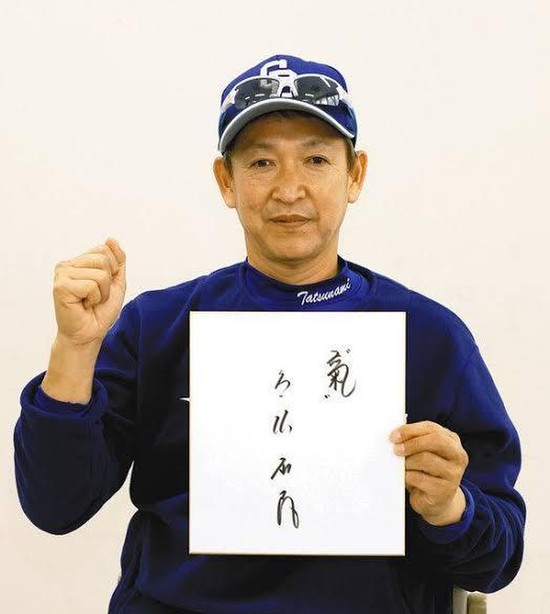 CD
Tatsunami
氣
立浪和義